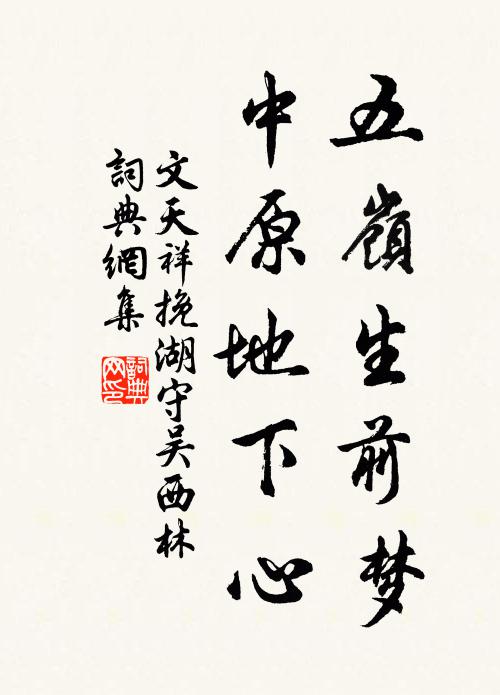 五嶺生前梦
中原地下心
文天祥挽湖守吴西林
詞典網集
詞典网印